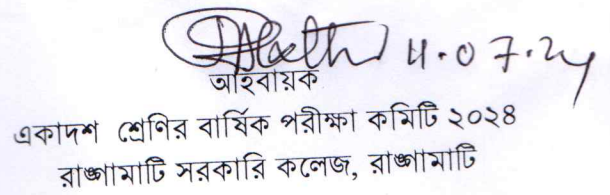 11.07.24
আহবায়ক
একাদশ শ্রেণির বার্ষিক পরীক্ষা কমিটি ২০২৪
রাঙ্গামাটি সরকারি কলেজ, রাঙ্গামাটি